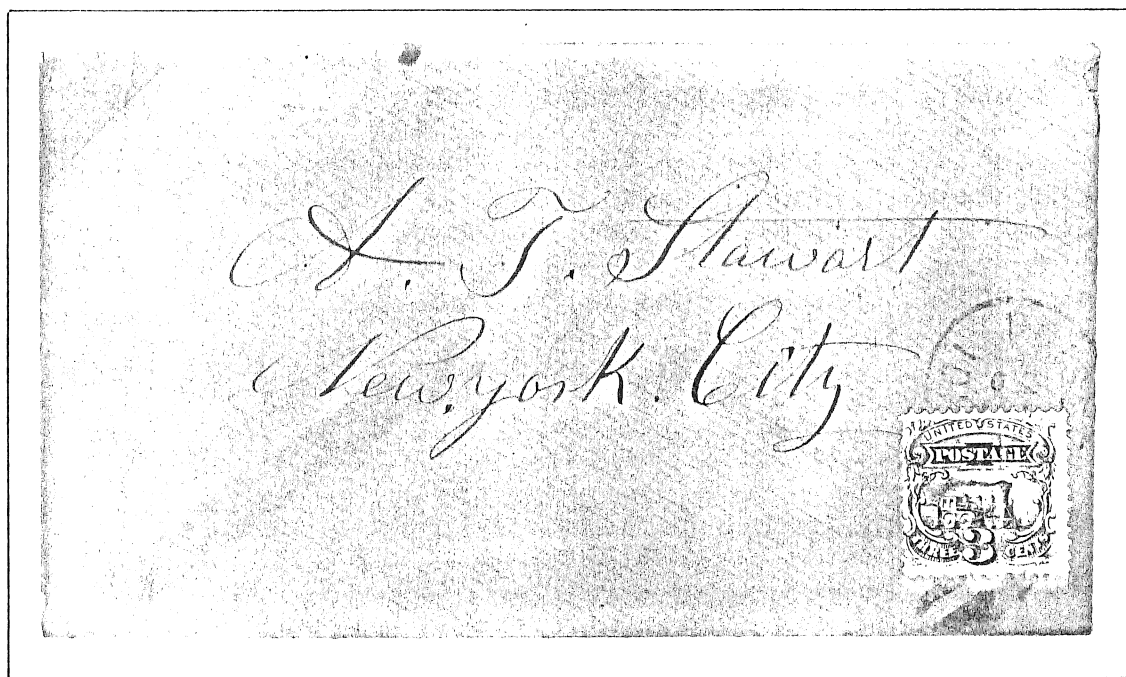 A. T. Stawart
New. york. City
UNITED STATES
POSTAGE
THREE 3 CENTS